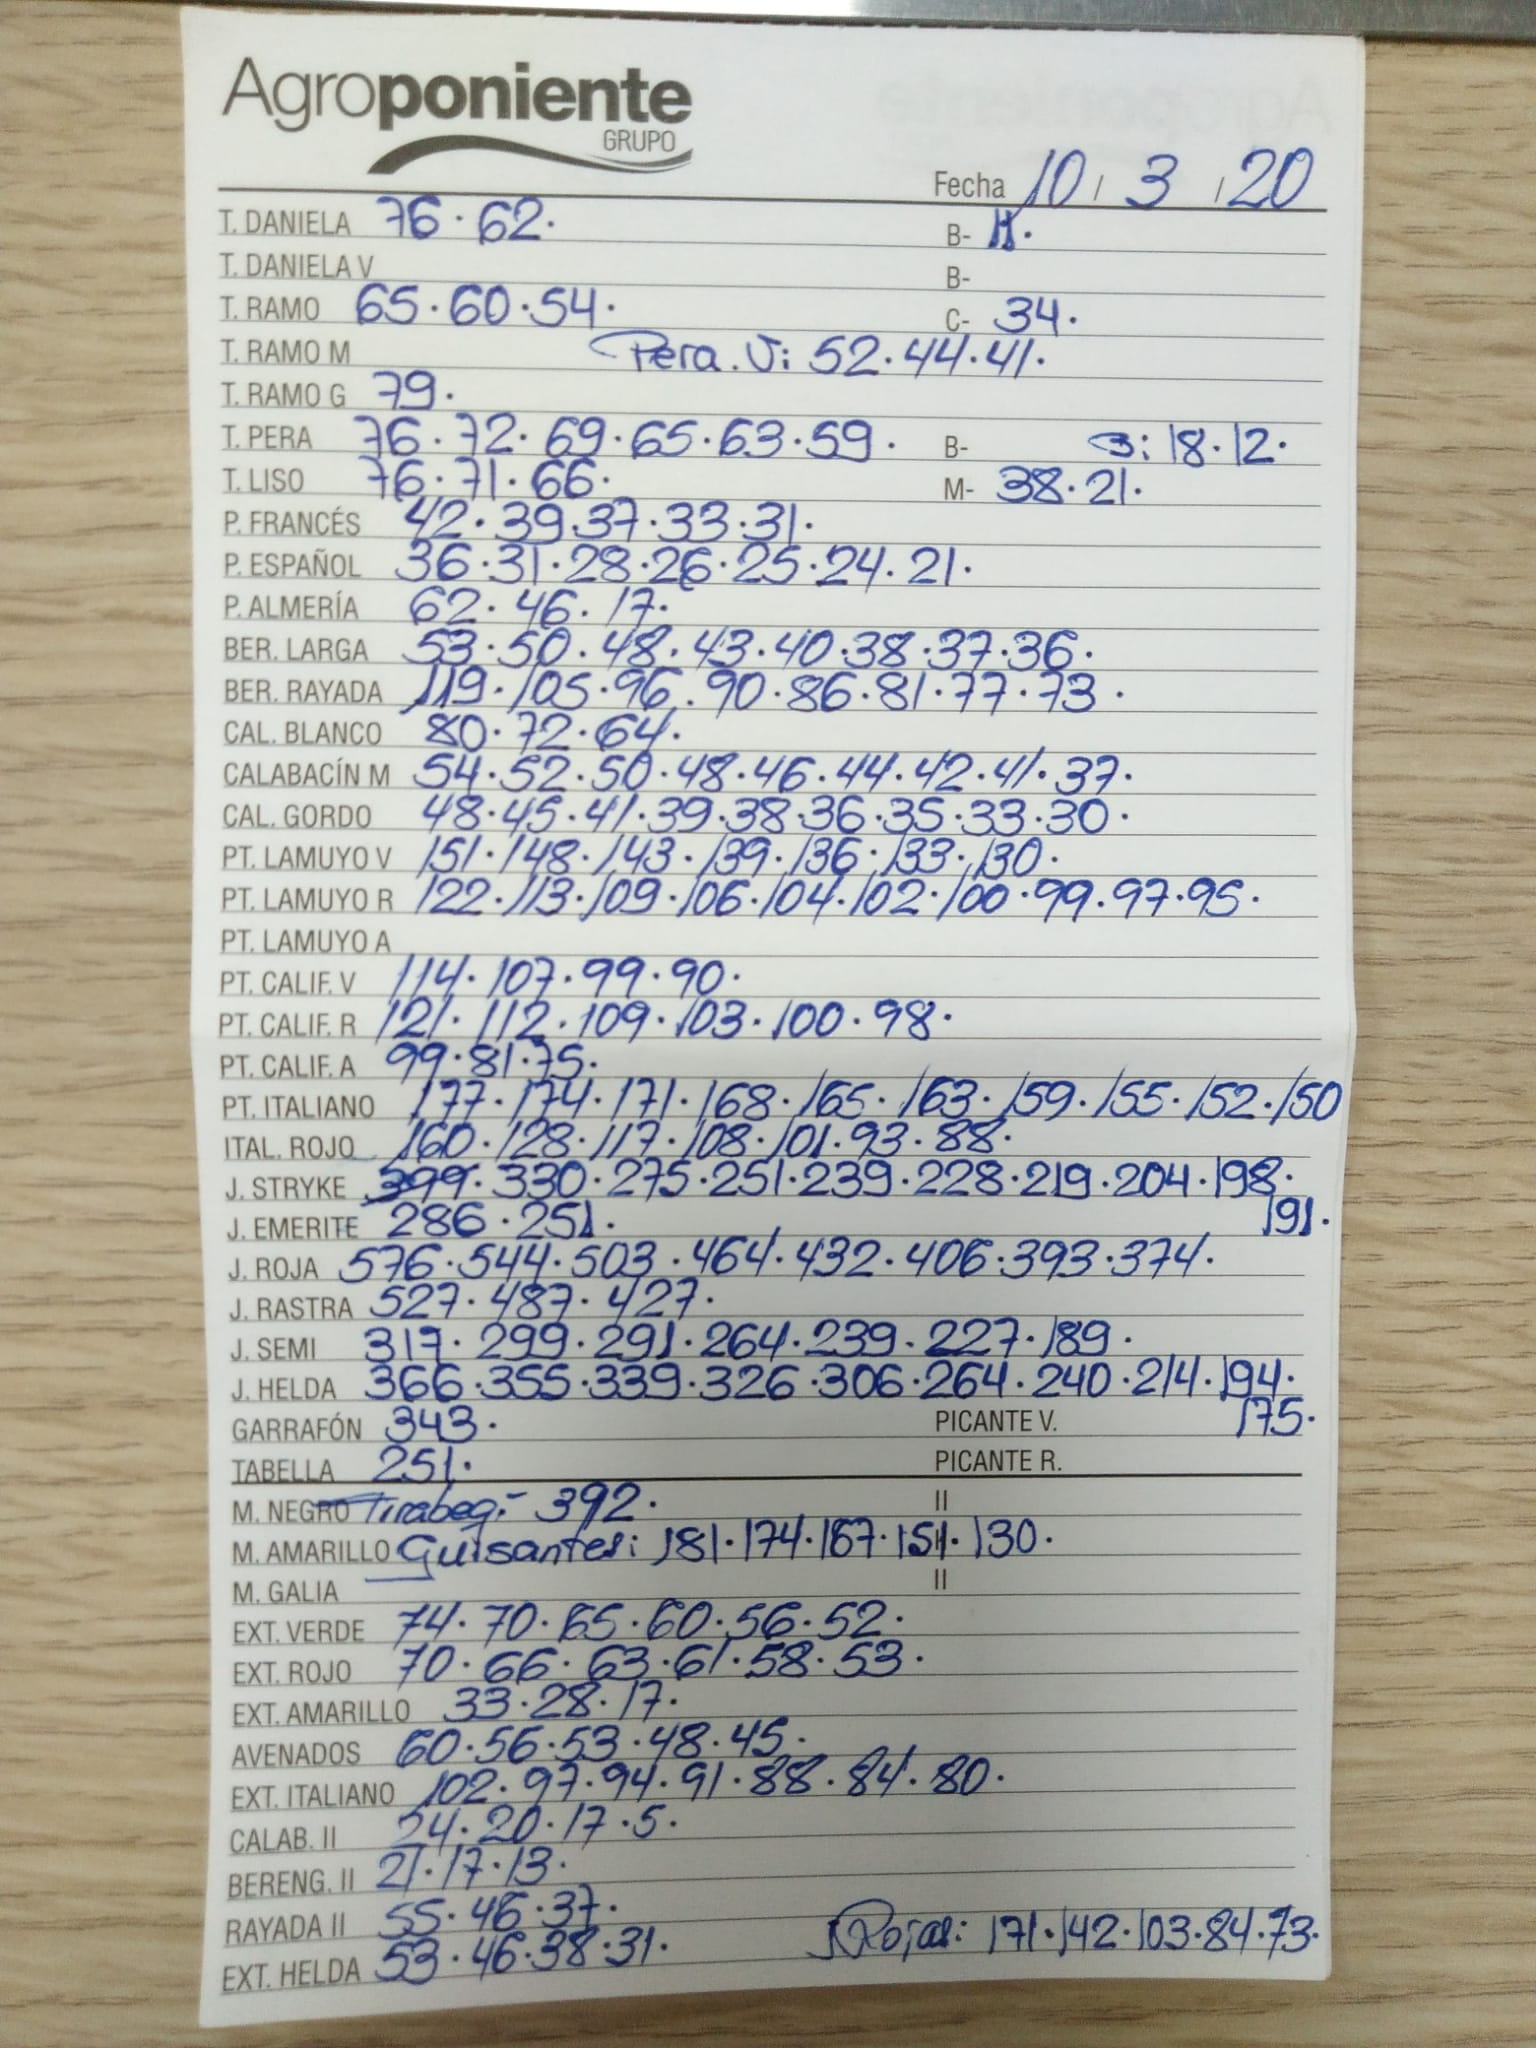 Agroponiente
GRUPO
Fecha 10 / 3 / 20
T. DANIELA 76 · 62· B-
T. DANIELA V B-
T. RAMO 65 · 60 · 54 · C- 34 ·
T. RAMO M Pera. V: 52 · 44 · 41 ·
T. RAMO G 79 ·
T. PERA 76 · 72 · 69 · 65 · 63 · 59 · B- 3: 18 · 12 ·
T. LISO 76 · 71 · 66 · M- 38 · 21 ·
P. FRANCÉS 42 · 39 · 37 · 33 · 31 ·
P. ESPAÑOL 36 · 31 · 28 · 26 · 25 · 24 · 21 ·
P. ALMERÍA 62 · 46 · 17 ·
BER. LARGA 53 · 50 · 48 · 43 · 40 · 38 · 37 · 36 ·
BER. RAYADA 119 · 105 · 96 · 90 · 86 · 81 · 77 · 73 ·
CAL. BLANCO 80 · 72 · 64 ·
CALABACÍN M 54 · 52 · 50 · 48 · 46 · 44 · 42 · 41 · 37 ·
CAL. GORDO 48 · 45 · 41 · 39 · 38 · 36 · 35 · 33 · 30 ·
PT. LAMUYO V 151 · 148 · 143 · 139 · 136 · 133 · 130 ·
PT. LAMUYO R 122 · 113 · 109 · 106 · 104 · 102 · 100 · 99 · 97 · 95 ·
PT. LAMUYO A
PT. CALIF. V 114 · 107 · 99 · 90 ·
PT. CALIF. R 121 · 112 · 109 · 103 · 100 · 98 ·
PT. CALIF. A 99 · 81 · 75 ·
PT. ITALIANO 177 · 174 · 171 · 168 · 165 · 163 · 159 · 155 · 152 · 150
ITAL. ROJO 160 · 128 · 117 · 108 · 101 · 93 · 88 ·
J. STRYKE 399 · 330 · 275 · 251 · 239 · 228 · 219 · 204 · 198 ·
J. EMERITE 286 · 251 · 191 ·
J. ROJA 576 · 544 · 503 · 464 · 432 · 406 · 393 · 374 ·
J. RASTRA 527 · 487 · 427 ·
J. SEMI 317 · 299 · 291 · 264 · 239 · 227 · 189 ·
J. HELDA 366 · 355 · 339 · 326 · 306 · 264 · 240 · 214 · 194 ·
GARRAFÓN 343 · PICANTE V. 175 ·
TABELLA 251 · PICANTE R.
M. NEGRO Tirabeq:- 392 · II
M. AMARILLO Guisantes: 181 · 174 · 167 · 151 · 130 ·
M. GALIA II
EXT. VERDE 74 · 70 · 65 · 60 · 56 · 52 ·
EXT. ROJO 70 · 66 · 63 · 61 · 58 · 53 ·
EXT. AMARILLO 33 · 28 · 17 ·
AVENADOS 60 · 56 · 53 · 48 · 45 ·
EXT. ITALIANO 102 · 97 · 94 · 91 · 88 · 84 · 80 ·
CALAB. II 24 · 20 · 17 · 5 ·
BERENG. II 21 · 17 · 13 ·
RAYADA II 55 · 46 · 37 ·
EXT. HELDA 53 · 46 · 38 · 31 · Rojas: 171 · 142 · 103 · 84 · 73 ·